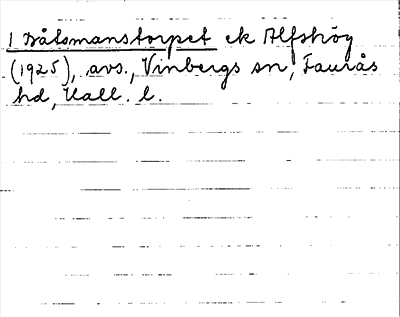 1 Båtsmanstorpet ek Alfshög
(1925), avs., Vinbergs sn, Faurås
hd, Hall. l.